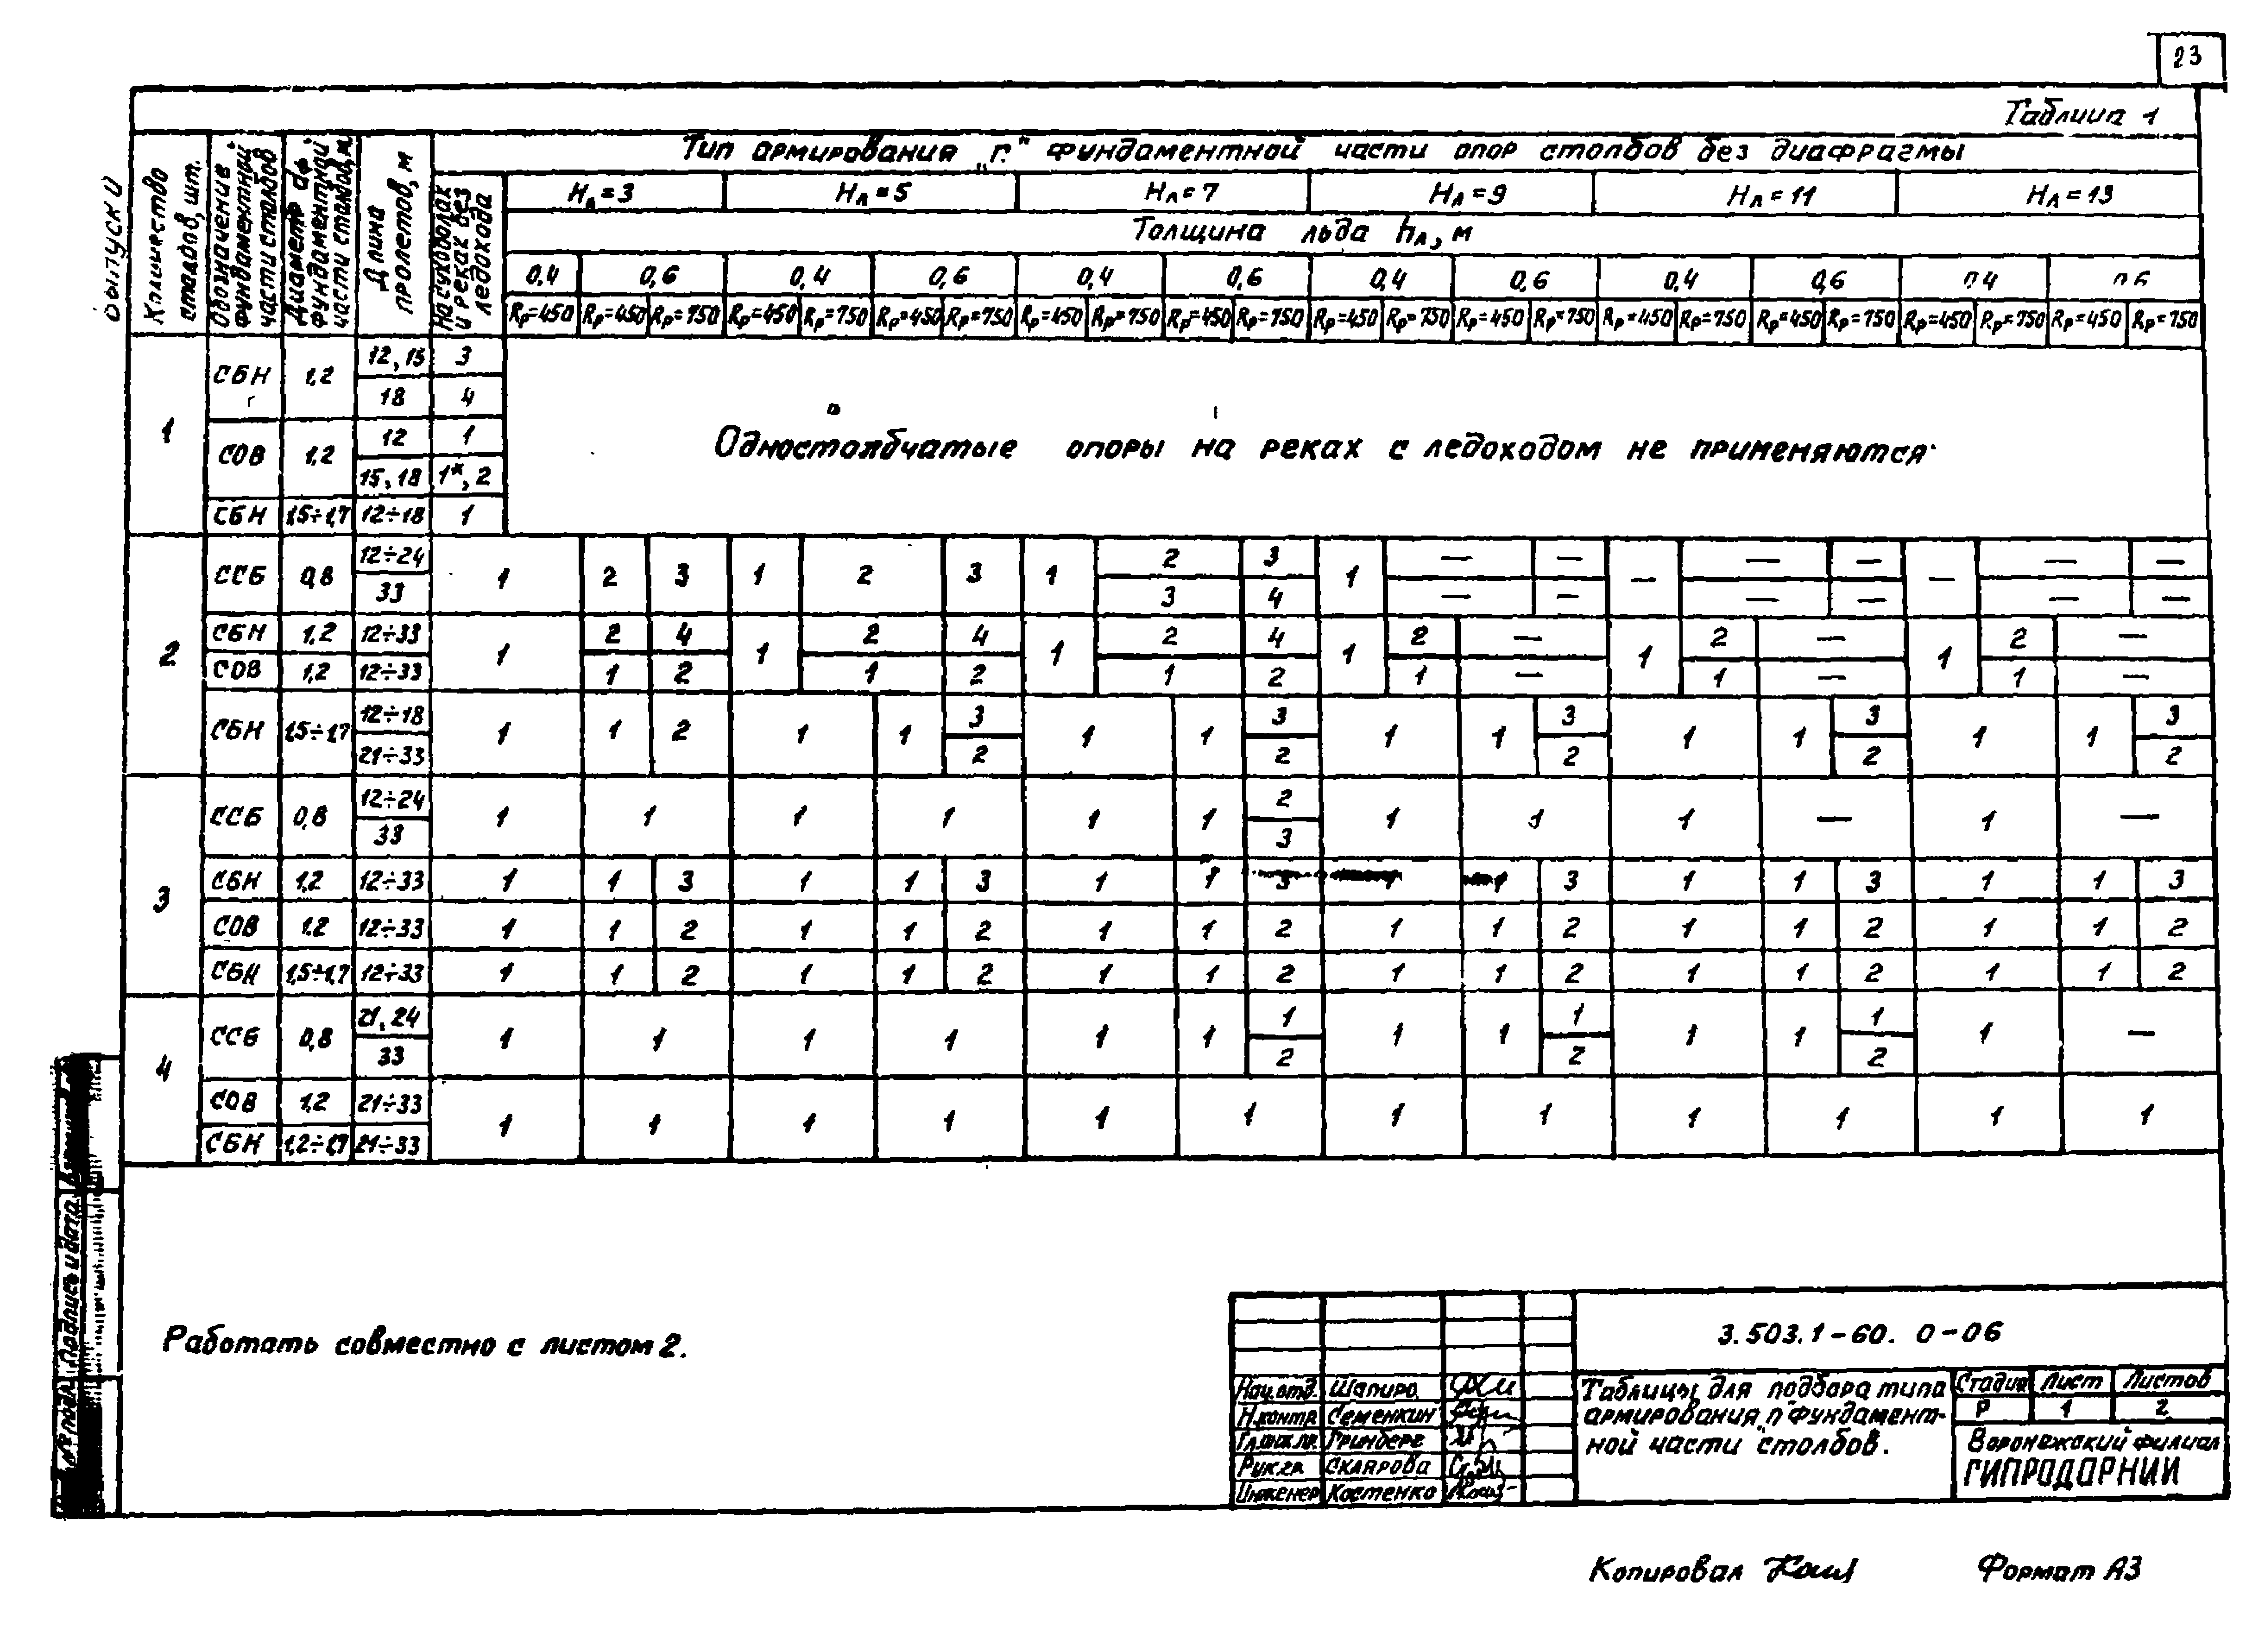 23
Таблица 1
выпуск 0
Количество столбов, шт.
Обозначение фундаментной части столбов
Диаметр dф фундаментной части столбов, м
Длина пролетов, м
Тип армирования „г" фундаментной части опор столбов без диафрагмы
На суходолах и реках без ледохода
Hл=3 Hл=5 Hл=7 Hл=9 Hл=11 Hл=13
Толщина льда hл, м
0,4 0,6 0,4 0,6 0,4 0,6 0,4 0,6 0,4 0,6 0,4 0,6
Rp=450 Rp=450 Rp=750 Rp=450 Rp=750 Rp=450 Rp=750 Rp=450 Rp=750 Rp=450 Rp=750 Rp=450 Rp=750 Rp=450 Rp=750 Rp=450 Rp=750 Rp=450 Rp=750 Rp=450 Rp=750 Rp=450 Rp=750
1 СБН 1,2 12,15 3
18 4
СОВ 1,2 12 1
15,18 1*, 2
СБН 1,5÷1,7 12÷18 1
Одностолбчатые опоры на реках с ледоходом не применяются
2 ССБ 0,8 12÷24 1 2 3 1 2 3 1 2 3 1 — — — — — — — —
33 3 4 — — — — — —
СБН 1,2 12÷33 1 2 4 1 2 4 1 2 4 1 2 — 1 2 — 1 2 —
СОВ 1,2 12÷33 1 2 1 2 1 2 1 — 1 — 1 —
СБН 1,5÷1,7 12÷18 1 1 2 1 1 3 1 1 3 1 1 3 1 1 3 1 1 3
21÷33 2 2 2 2 2
3 ССБ 0,8 12÷24 1 1 1 1 1 1 2 1 1 1 — 1 —
33 3
СБН 1,2 12÷33 1 1 3 1 1 3 1 1 3 1 1 3 1 1 3 1 1 3
СОВ 1,2 12÷33 1 1 2 1 1 2 1 1 2 1 1 2 1 1 2 1 1 2
СБН 1,5÷1,7 12÷33 1 1 2 1 1 2 1 1 2 1 1 2 1 1 2 1 1 2
4 ССБ 0,8 21, 24 1 1 1 1 1 1 1 1 1 1 1 1 1 1 —
33 2 2 2
СОВ 1,2 21÷33 1 1 1 1 1 1 1 1 1 1 1 1
СБН 1,2÷1,7 21÷33
Подпись и дата
№ подл.
Работать совместно с листом 2.
3.503.1-60. 0-06
Нач.отд. Шапиро
Н.контр Семенкин
Гл.инж.пр. Гринберг
Рук.гр Склярова
Инженер Костенко
Таблицы для подбора типа
армирования „п" фундамент-
ной части столбов.
Стадия Лист Листов
Р 1 2
Воронежский филиал
ГИПРОДОРНИИ
Копировал
Формат А3